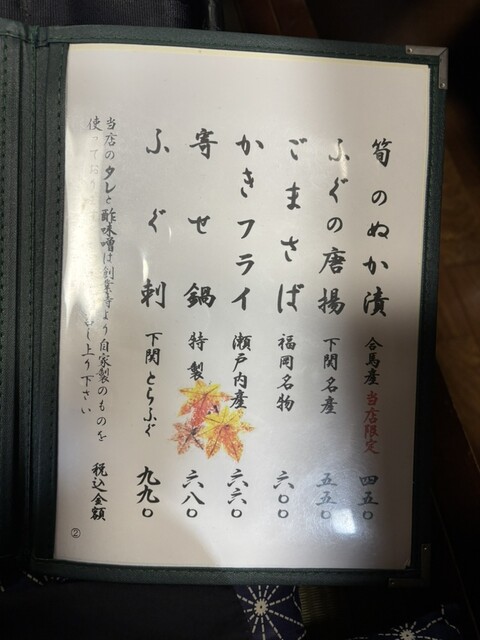 筍のぬか漬 合馬産 当店限定 四五〇
ふぐの唐揚 下関名産 五五〇
ごまさば 福岡名物 六〇〇
かきフライ 瀬戸内産 六六〇
寄せ鍋 特製 六八〇
ふぐ刺 下関とらふぐ 九九〇
当店のタレと酢味噌は創業時より自家製のものを
使っており し上り下さい
税込金額
②